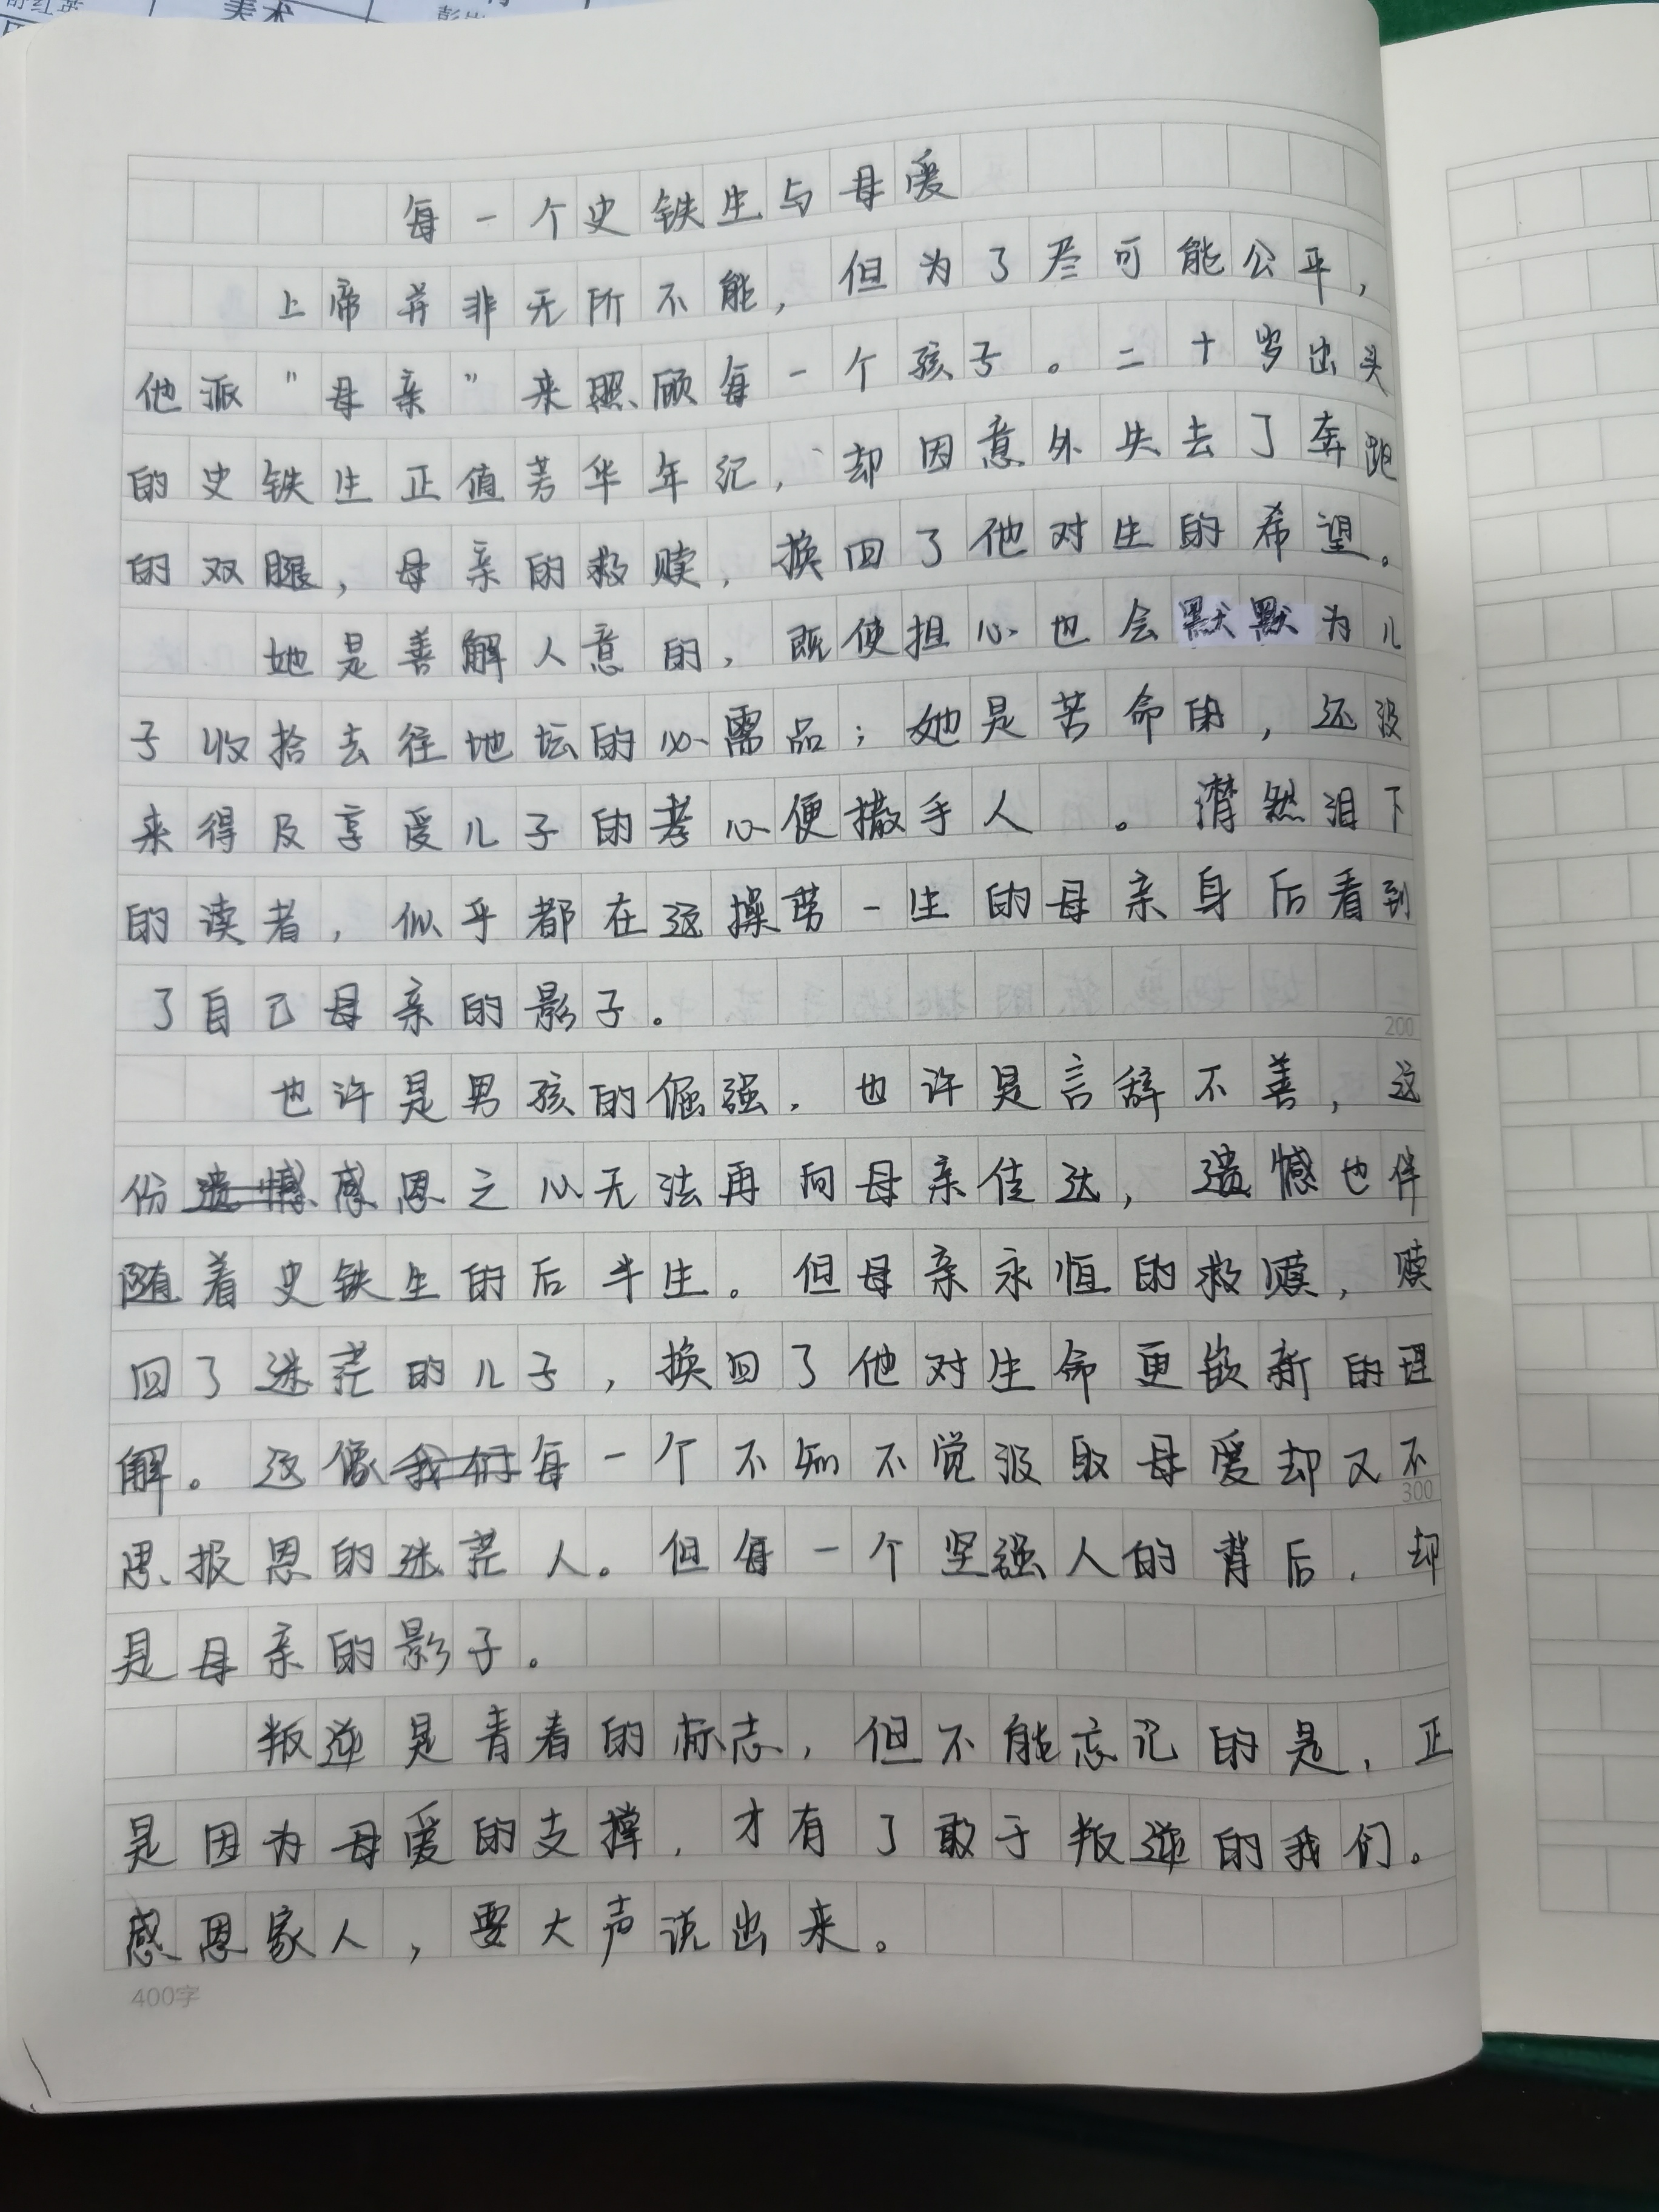 美术
每一个史铁生与母爱
上帝并非无所不能，但为了尽可能公平，
他派“母亲”来照顾每一个孩子。二十岁出头
的史铁生正值芳华年记，却因意外失去了奔跑
的双腿，母亲的救赎，换回了他对生的希望。
她是善解人意的，既使担心也会默默为儿
子收拾去往地坛的必需品；她是苦命的，还没
来得及享受儿子的孝心便撒手人 。潸然泪下
的读者，似乎都在这操劳一生的母亲身后看到
了自己母亲的影子。
200
也许是男孩的倔强，也许是言辞不善，这
份遗憾感恩之心无法再向母亲传达，遗憾也伴
随着史铁生的后半生。但母亲永恒的救赎，赎
回了迷茫的儿子，换回了他对生命更崭新的理
解。这像我们每一个不知不觉汲取母爱却又不
300
思报恩的迷茫人。但每一个坚强人的背后，却
是母亲的影子。
叛逆是青春的标志，但不能忘记的是，正
是因为母爱的支撑，才有了敢于叛逆的我们。
感恩家人，要大声说出来。
400字